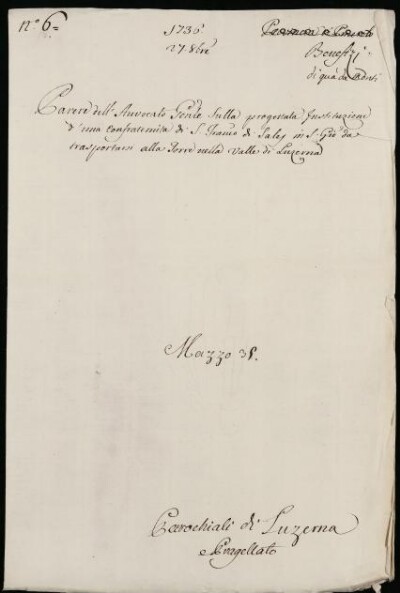 n.º 6=
1736
27. 8bre
Benefizi
di quà da Monti
Parere dell'Avvocato Gen.le Sulla progettata Instituzione
d'una confraternita di S. Franco di Sales in S. Gio da
trasportarsi alla Torre nella Valle di Luzerna
Mazzo 31.
Parrochiali di Luzerna
e Pragellato